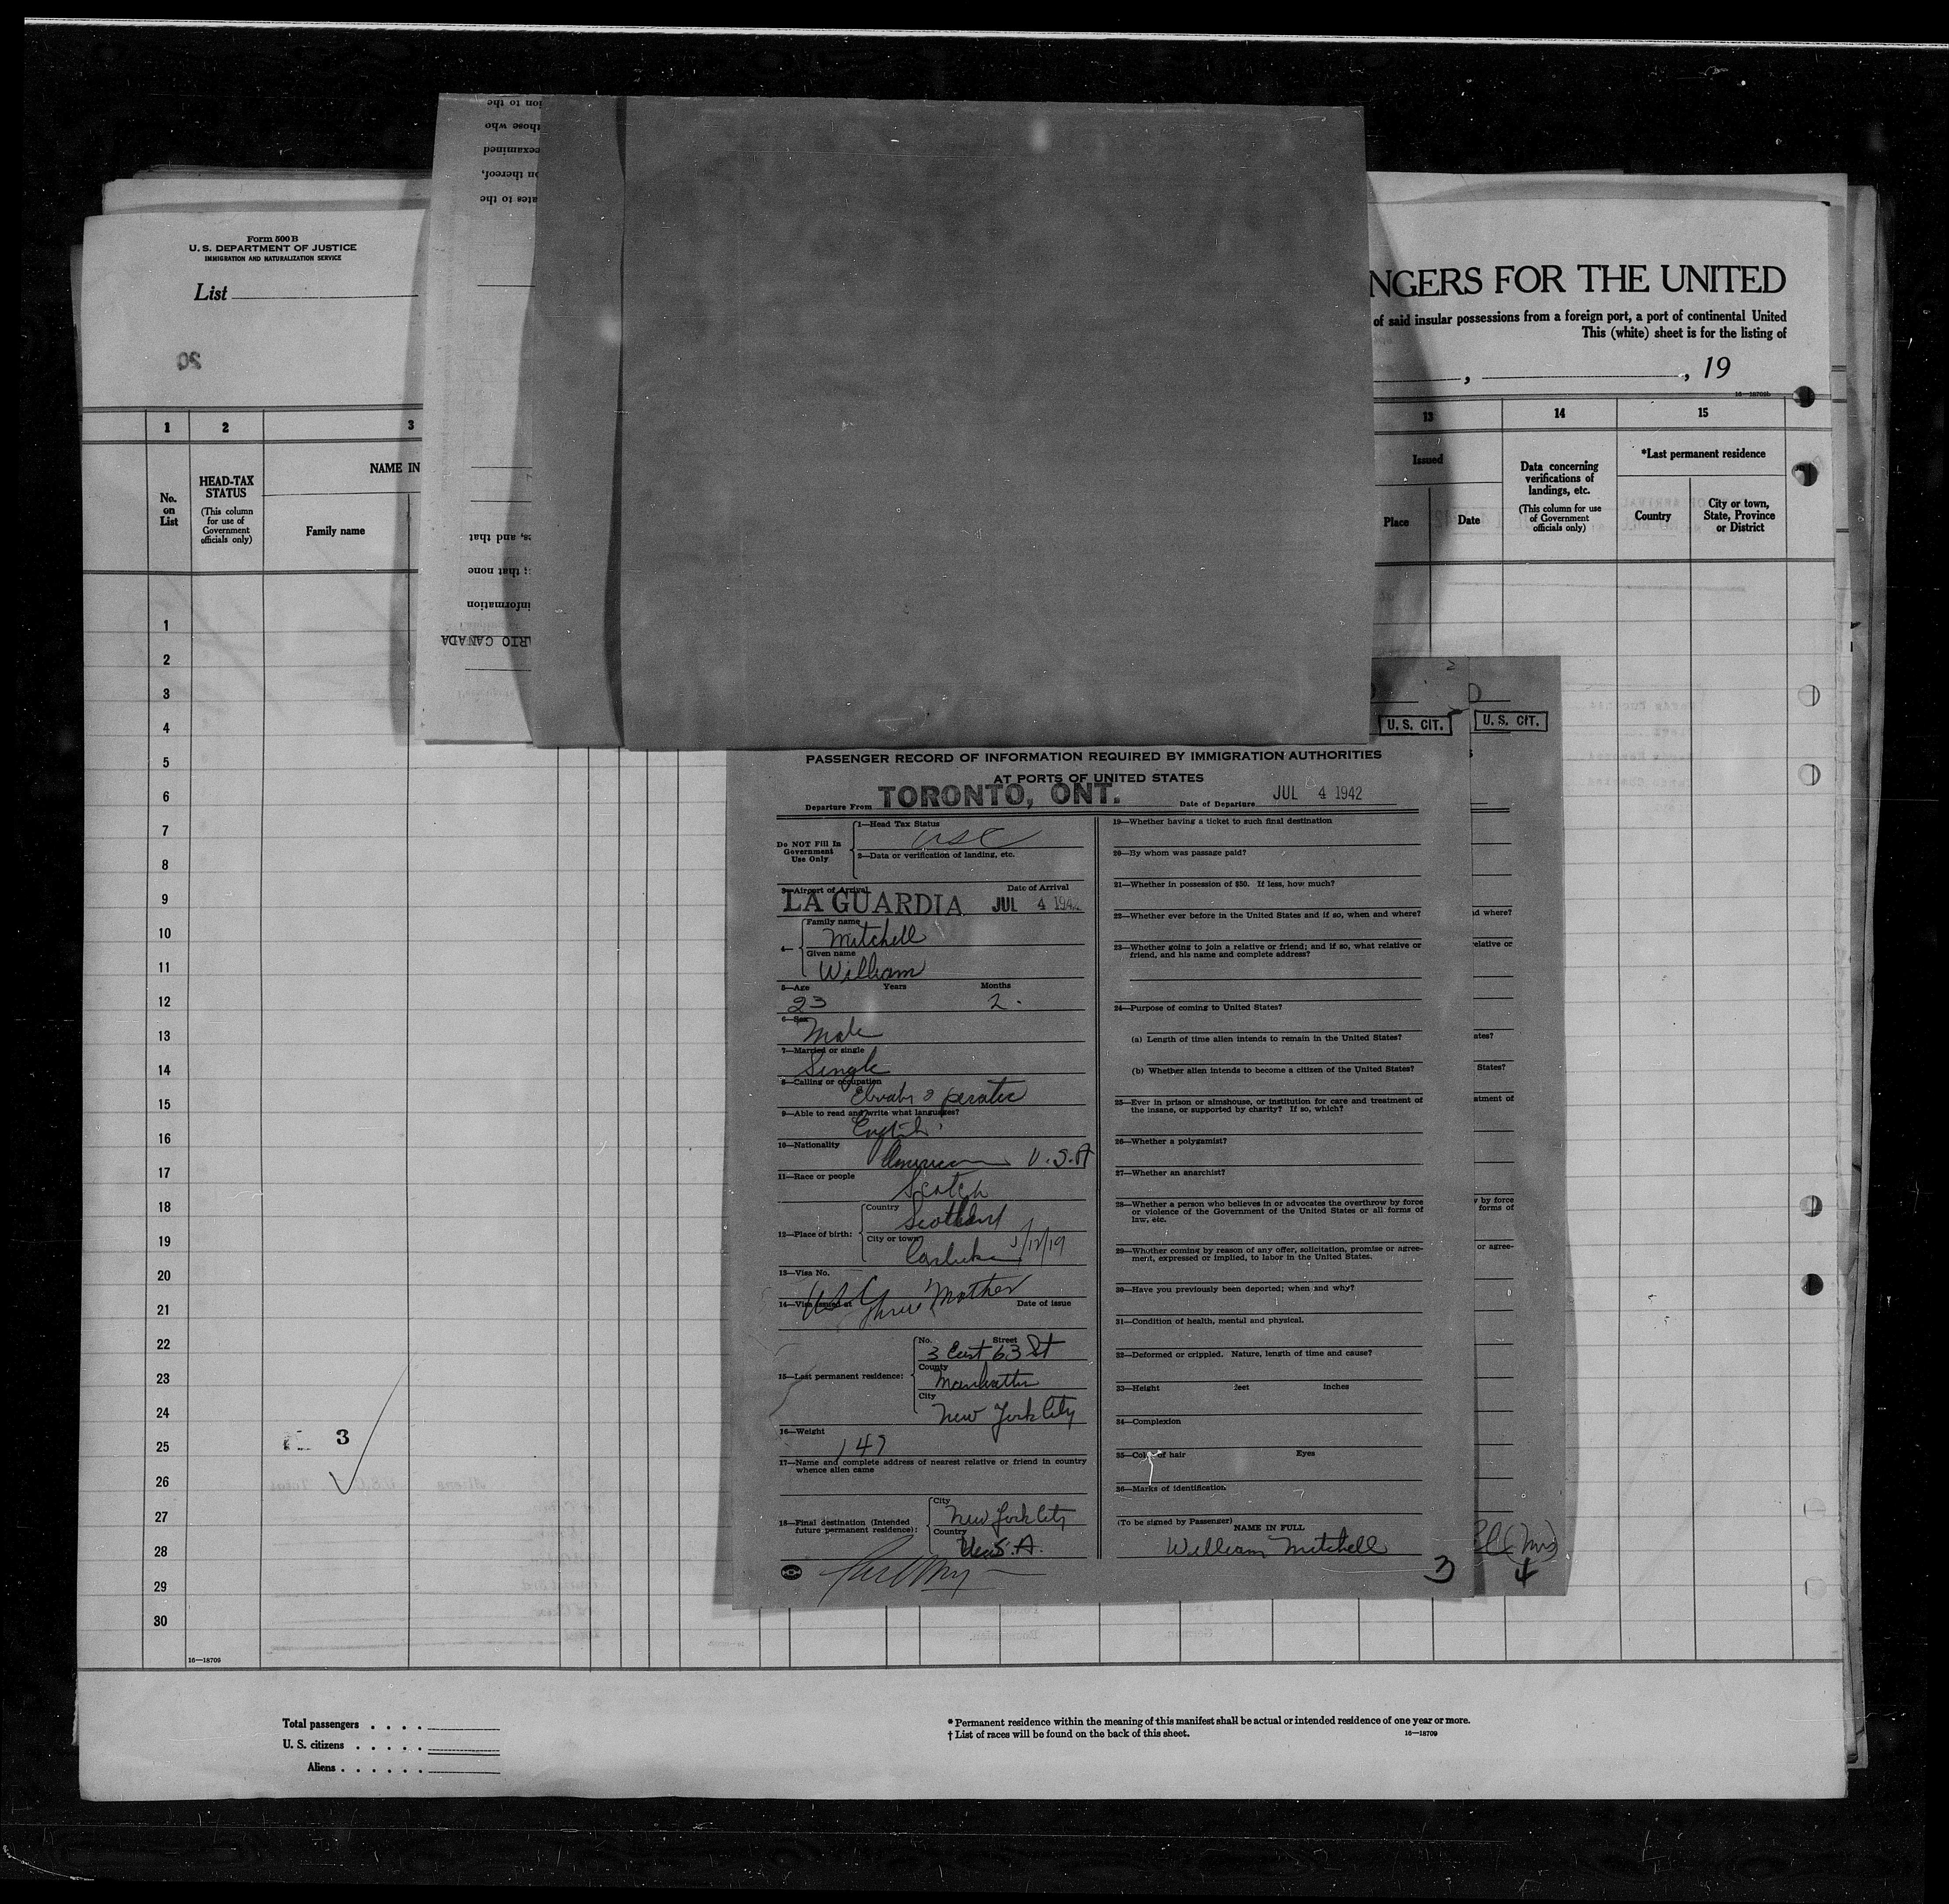 ion to the
those who
reexamined
on thereof,
ates to the
Form 500 B
U. S. DEPARTMENT OF JUSTICE
IMMIGRATION AND NATURALIZATION SERVICE
List
20
NGERS FOR THE UNITED
of said insular possessions from a foreign port, a port of continental United
This (white) sheet is for the listing of
, , 19
16—18709b
1 2 3 13 14 15
No. on List
HEAD-TAX STATUS
(This column for use of Government officials only)
NAME IN
Family name
s, and that
; that none
information
RIO CANADA
Issued
Place
Date
Data concerning verifications of landings, etc.
(This column for use of Government officials only)
*Last permanent residence
Country
City or town, State, Province or District
1
2
3
4
5
6
7
8
9
10
11
12
13
14
15
16
17
18
19
20
21
22
23
24
25
26
27
28
29
30
3
16—18709
U. S. CIT.
U. S. CIT.
PASSENGER RECORD OF INFORMATION REQUIRED BY IMMIGRATION AUTHORITIES
AT PORTS OF UNITED STATES
Departure From TORONTO, ONT. Date of Departure JUL 4 1942
Do NOT Fill In Government Use Only
1—Head Tax Status
USC
2—Data or verification of landing, etc.
3—Airport of Arrival Date of Arrival
LA GUARDIA JUL 4 1942
4—
Family name
Mitchell
Given name
William
5—Age Years Months
23 2
6—Sex
Male
7—Married or single
Single
8—Calling or occupation
operator
9—Able to read and write what languages?
English
10—Nationality
American U.S.A
11—Race or people
Scotch
12—Place of birth:
Country
Scotland
City or town
Carluke
13—Visa No.
USC thru Mother
14—Visa issued at Date of issue
15—Last permanent residence:
No. Street
3 East 63 St
County
Manhattan
City
New York City
16—Weight
147
17—Name and complete address of nearest relative or friend in country
whence alien came
18—Final destination (Intended
future permanent residence):
City
New York City
Country
U.S.A.
19—Whether having a ticket to such final destination
20—By whom was passage paid?
21—Whether in possession of $50. If less, how much?
22—Whether ever before in the United States and if so, when and where?
23—Whether going to join a relative or friend; and if so, what relative or
friend, and his name and complete address?
24—Purpose of coming to United States?
(a) Length of time alien intends to remain in the United States?
(b) Whether alien intends to become a citizen of the United States?
25—Ever in prison or almshouse, or institution for care and treatment of
the insane, or supported by charity? If so, which?
26—Whether a polygamist?
27—Whether an anarchist?
28—Whether a person who believes in or advocates the overthrow by force
or violence of the Government of the United States or all forms of
law, etc.
29—Whether coming by reason of any offer, solicitation, promise or agree-
ment, expressed or implied, to labor in the United States.
30—Have you previously been deported; when and why?
31—Condition of health, mental and physical.
32—Deformed or crippled. Nature, length of time and cause?
33—Height feet inches
34—Complexion
35—Color of hair Eyes
36—Marks of identification
(To be signed by Passenger)
NAME IN FULL
William Mitchell
3
nd where?
relative or
ates?
States?
atment of
w by force
forms of
or agree-
(Mrs)
4
Total passengers . . . .
U. S. citizens . . . . .
Aliens . . . . . .
* Permanent residence within the meaning of this manifest shall be actual or intended residence of one year or more.
† List of races will be found on the back of this sheet.
16—18709